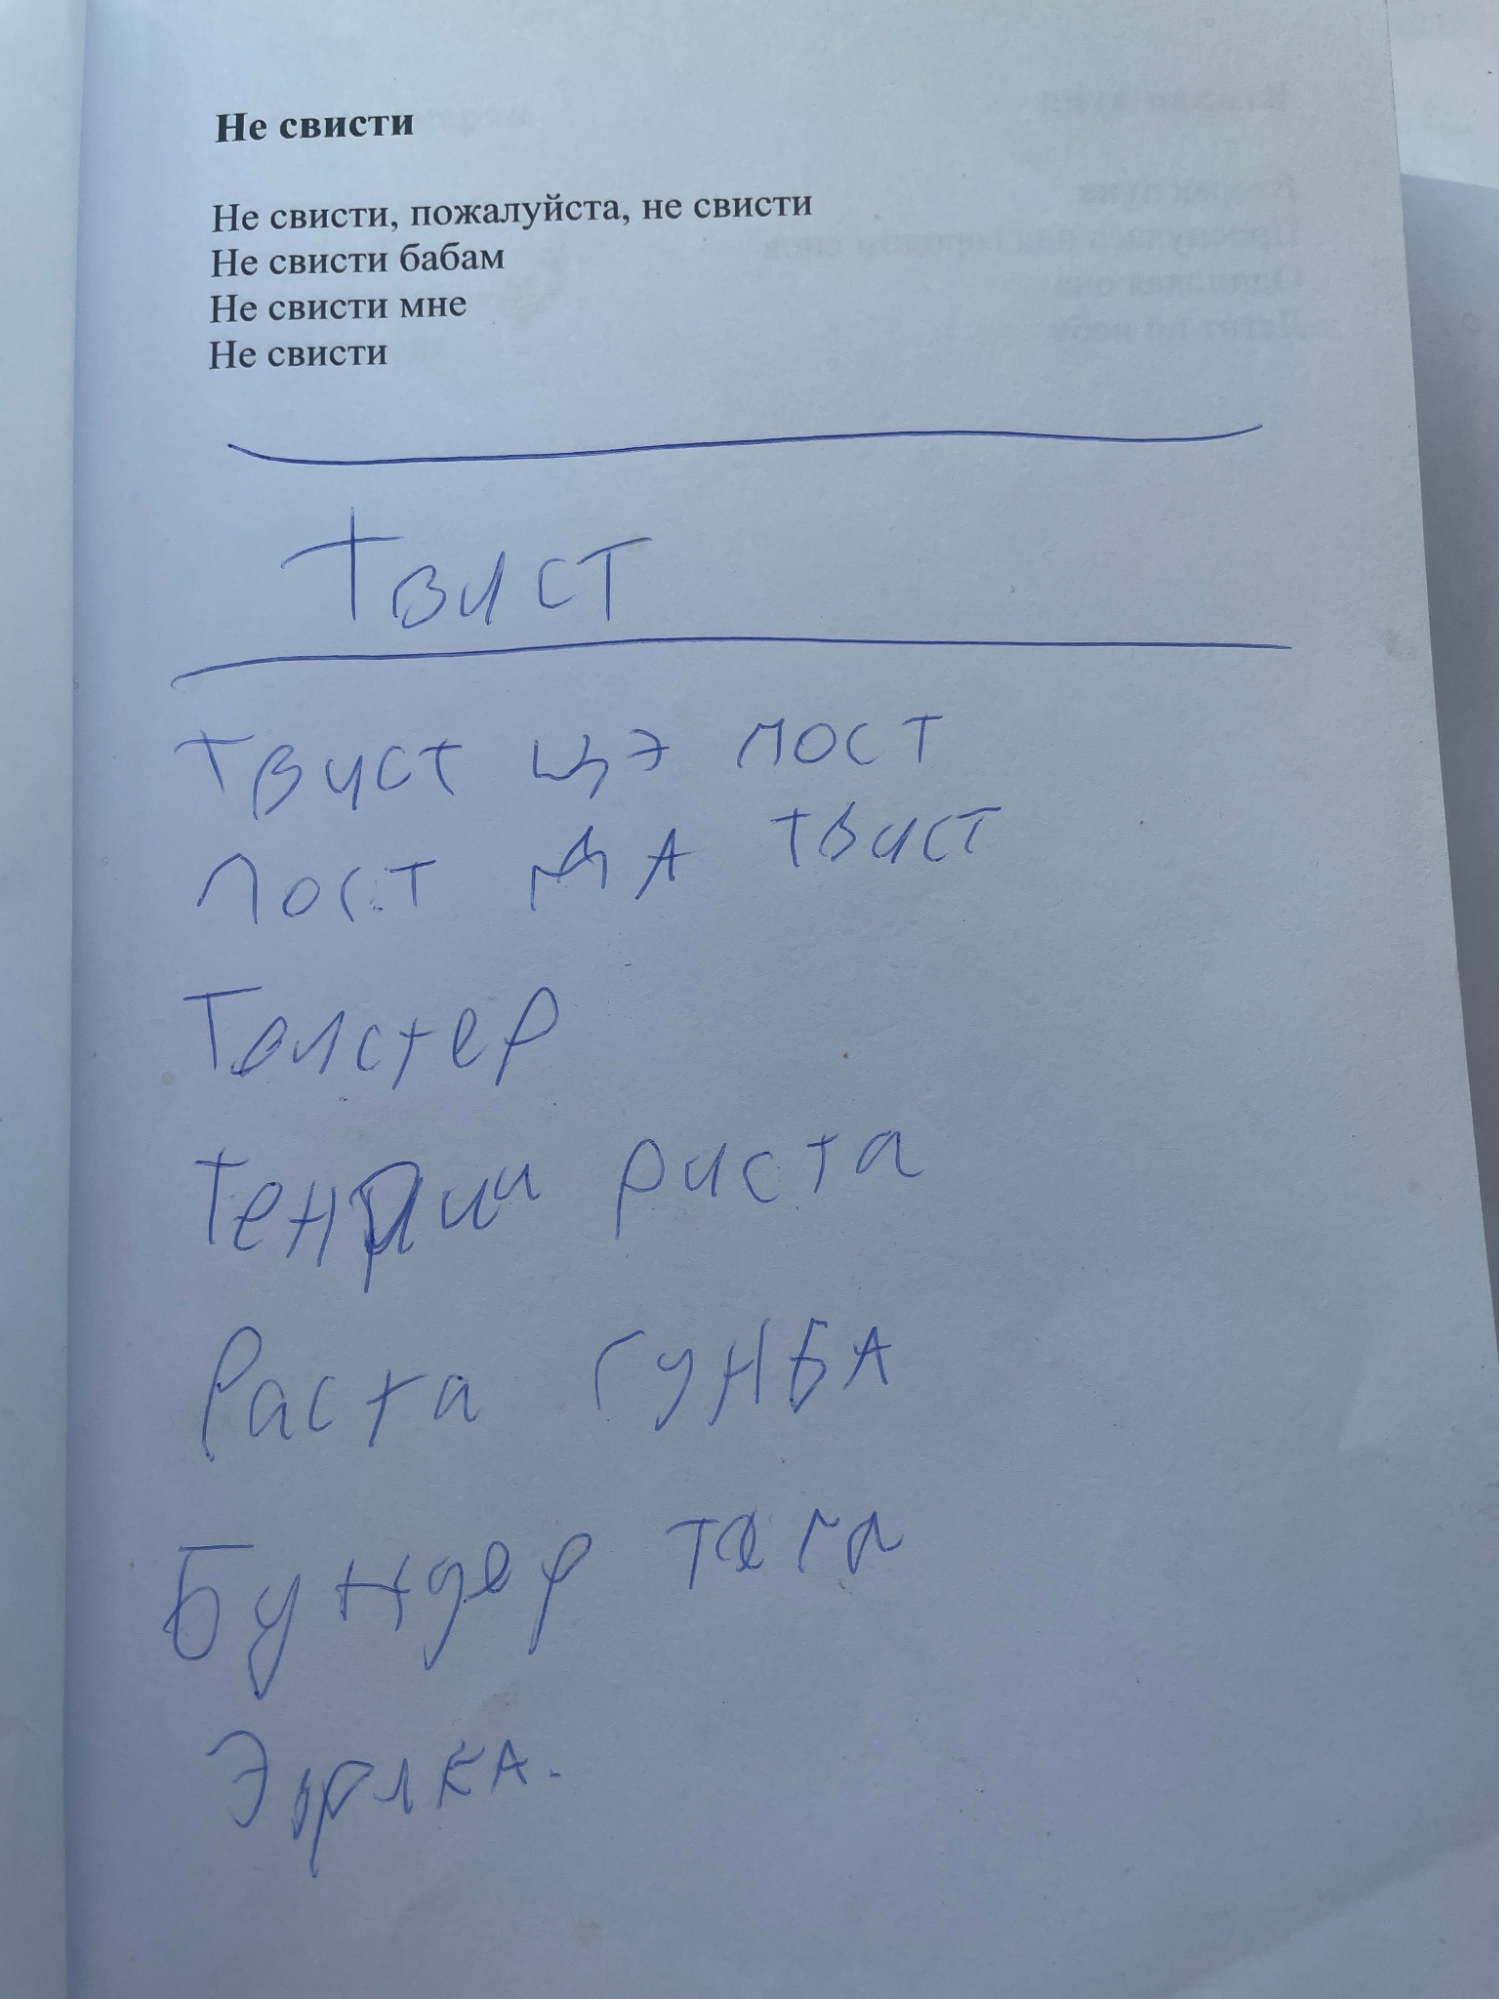 Не свисти
Не свисти, пожалуйста, не свисти
Не свисти бабам
Не свисти мне
Не свисти
Твист
Твист цэ пост
Пост да твист
Толстер
риста
Раста гунба
Бундер тага